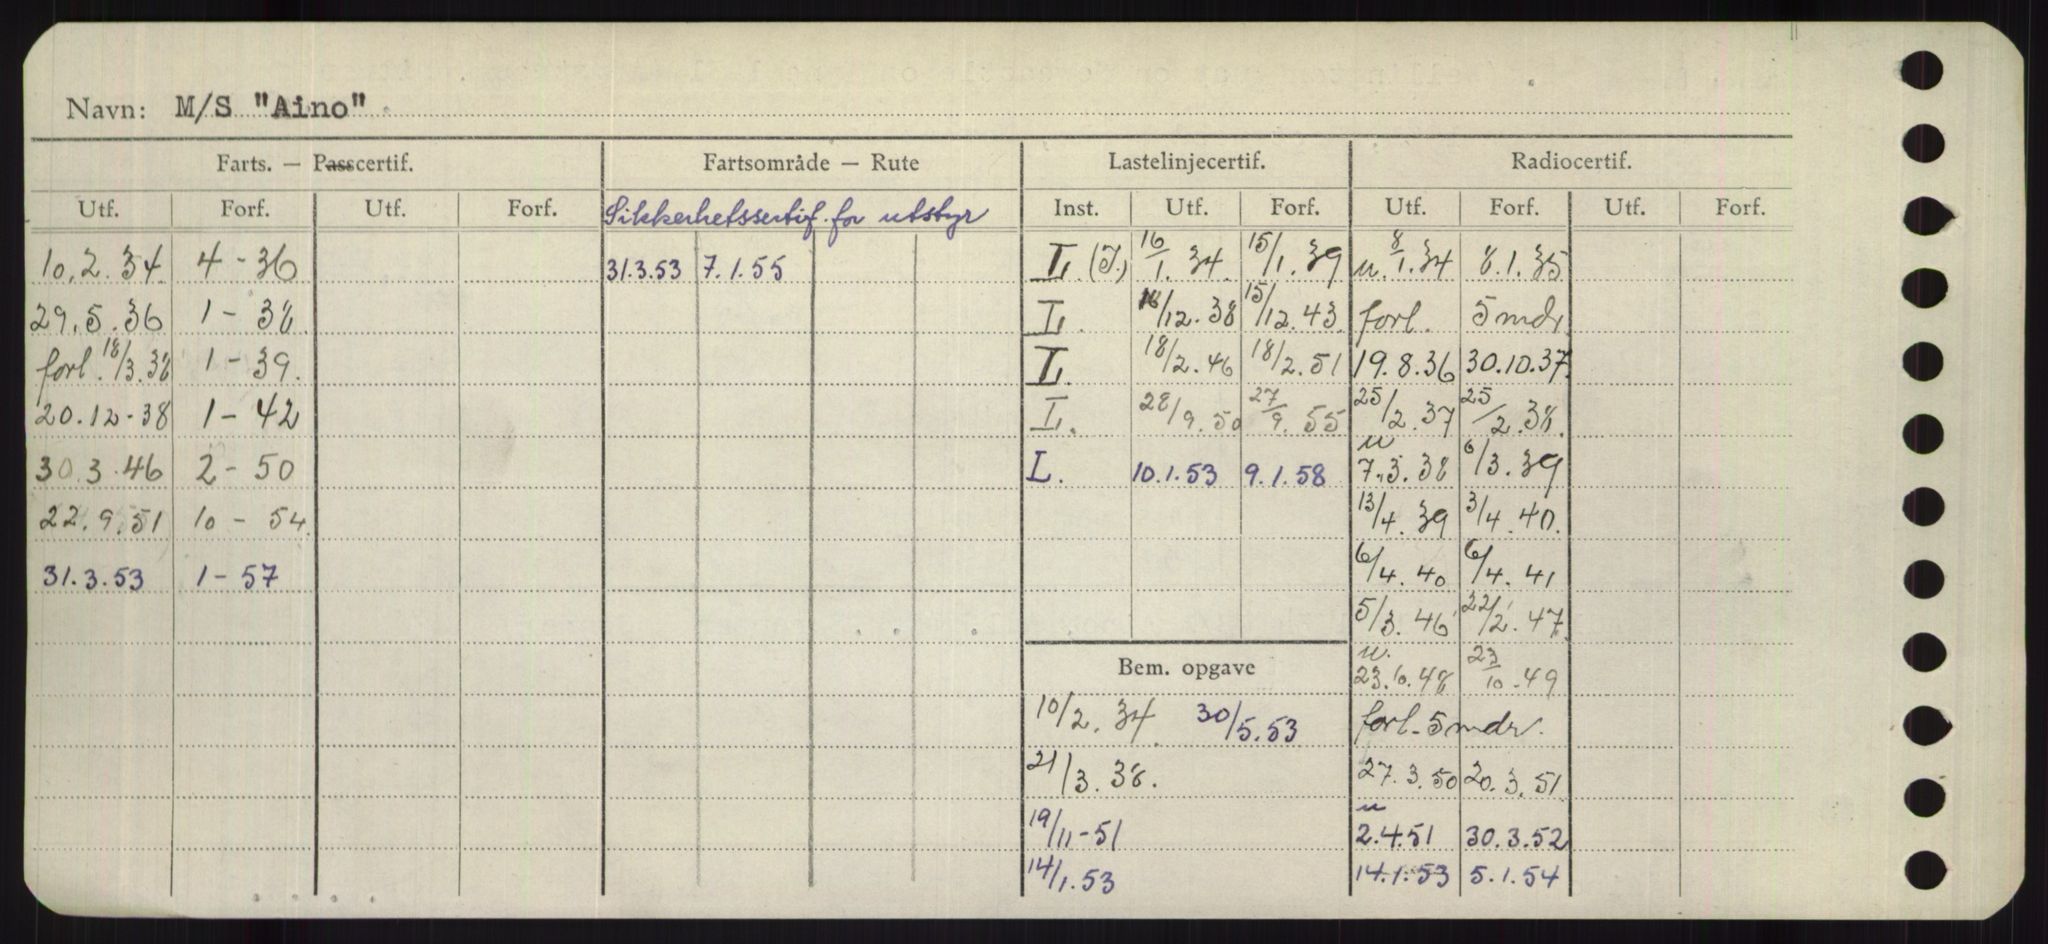 Navn: M/S "Aino"
Farts. — Passcertif. Fartsområde — Rute Lastelinjecertif. Radiocertif.
Utf. Forf. Utf. Forf. Sikkerhetssertif. for utstyr Inst. Utf. Forf. Utf. Forf. Utf. Forf.
10.2.34 4-36 31.3.53 7.1.55 L. (I.) 16/1.34. 15/1.39 u. 8/1.34 8.1.35
29.5.36 1-38. L. 16/12.38 15/12.43 forl. 5 mdr.
forl. 18/3.38 1-39. L. 18/2.46 18/2.51 19.8.36 30.10.37.
20.12-38 1-42 L. 28/9.50 27/9.55 25/2.37 25/2.38.
30.3.46 2-50 L. 10.1.53 9.1.58 u 7.3.38 6/3.39
22.9.51 10-54. 13/4.39 3/4.40.
31.3.53 1-57 6/4.40 6/4.41
5/3.46 22/2.47
Bem. opgave u. 23.10.48 23/10.49
10/2.34. 30/5.53 forl. 5 mdr.
21/3.38. 27.3.50 20.3.51
19/11-51 u 2.4.51 30.3.52
14/1.53 14.1.53 5.1.54